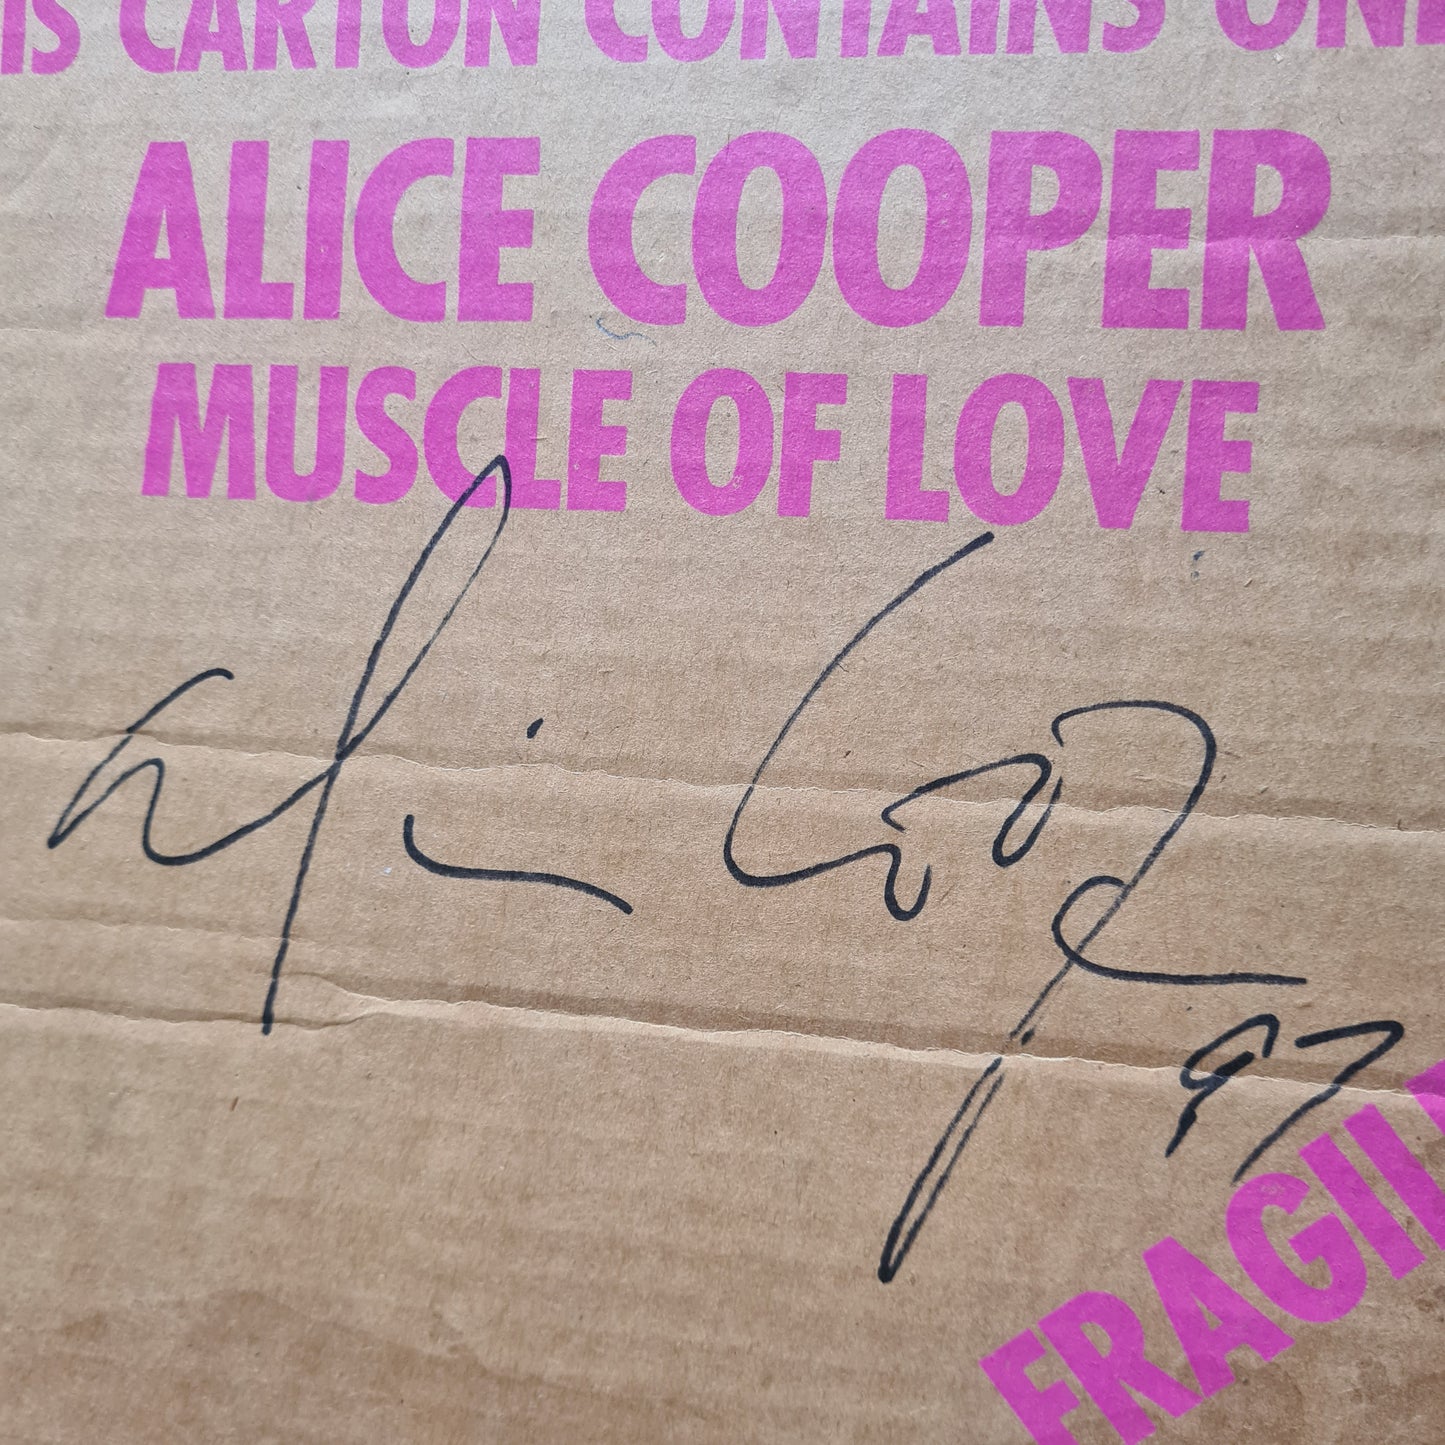 IS CARTON CONTAINS ONE
ALICE COOPER
MUSCLE OF LOVE
Alice Cooper
97
FRAGIL